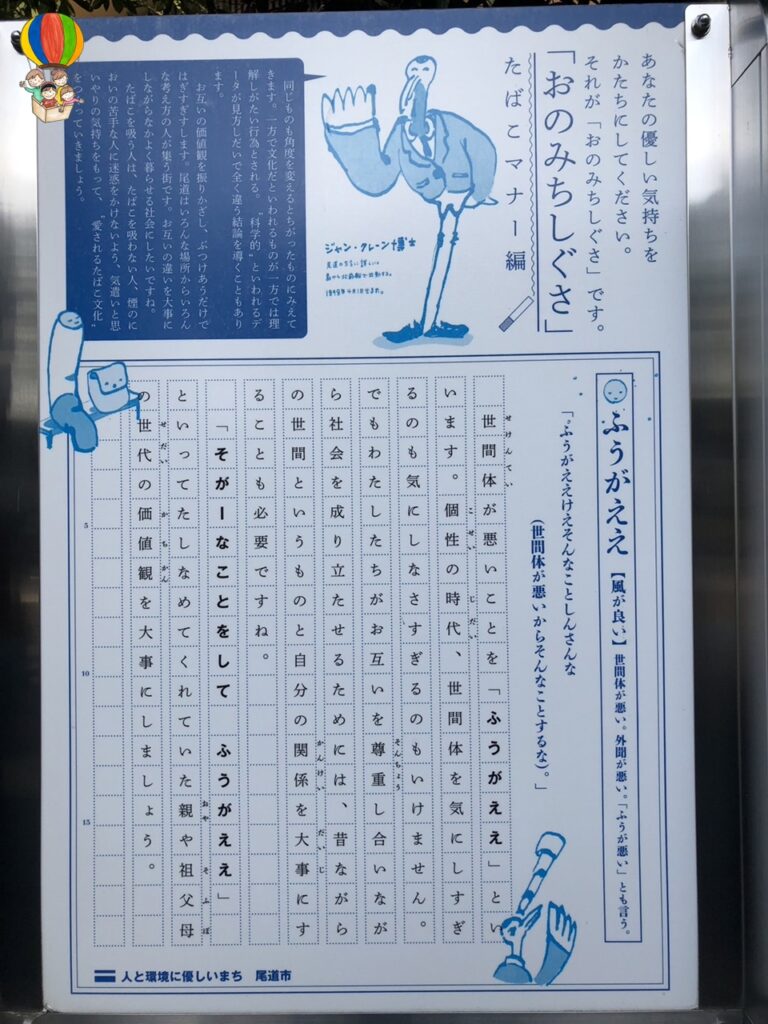 あなたの優しい気持ちを
かたちにしてください。
それが「おのみちしぐさ」です。
「おのみちしぐさ」
たばこマナー編
ジャン・クレーン博士
同じものも角度を変えるとちがったものにみえて
きます。一方で文化だといわれるものが一方では理
解しがたい行為とされる。〝科学的〟といわれるデ
ータが見方しだいで全く違う結論を導くこともあり
ます。
お互いの価値観を振りかざし、ぶつけあうだけで
はぎすぎすします。尾道はいろんな場所からいろん
な考え方の人が集う街です。お互いの違いを大事に
しながらなかよく暮らせる社会にしたいですね。
たばこを吸う人は、たばこを吸わない人、煙のに
おいの苦手な人に迷惑をかけないよう、気遣いと思
いやりの気持ちをもって、〝愛されるたばこ文化〟
を
ふうがええ【風が良い】世間体が悪い。外聞が悪い。「ふうが悪い」とも言う。
「ふうがええけえそんなことしんさんな
(世間体が悪いからそんなことするな)。」
世間体が悪いことを「ふうがええ」とい
います。個性の時代、世間体を気にしすぎ
るのも気にしなさすぎるのもいけません。
でもわたしたちがお互いを尊重し合いなが
ら社会を成り立たせるためには、昔ながら
の世間というものと自分の関係を大事にす
ることも必要ですね。
「そがーなことをして ふうがええ」
といってたしなめてくれていた親や祖父母
の世代の価値観を大事にしましょう。
5
10
15
人と環境に優しいまち 尾道市